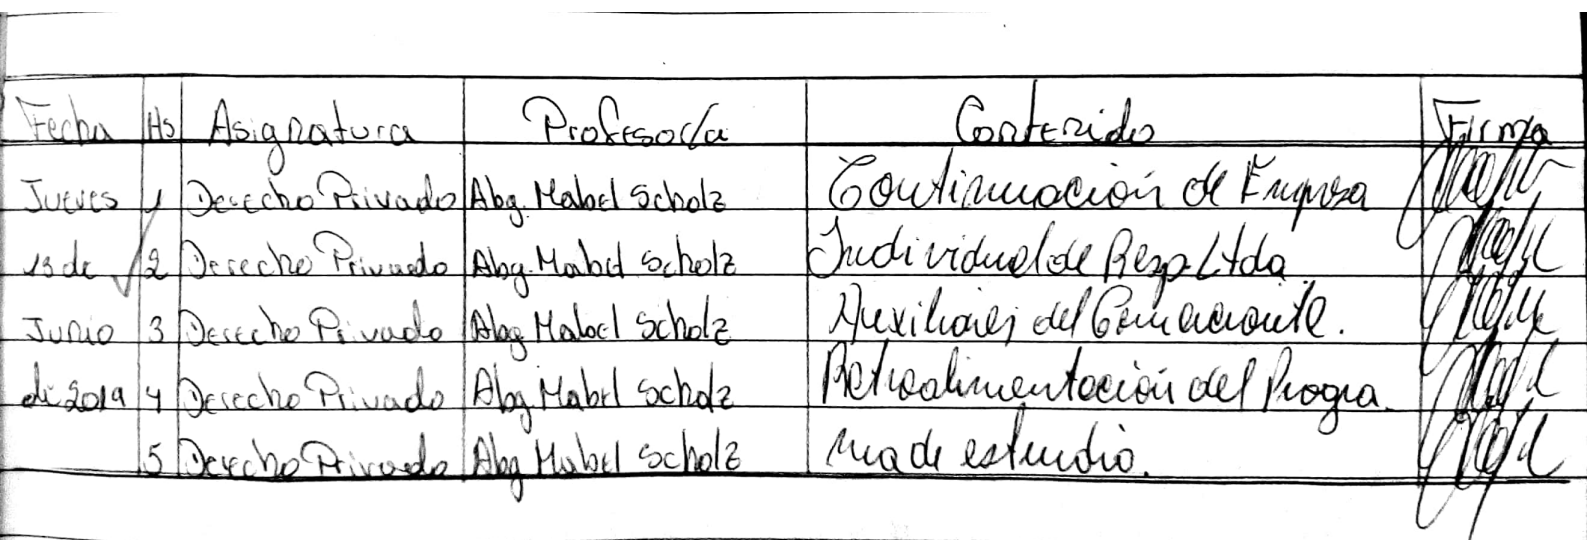 Fecha Hs Asignatura Profesor/a Contenido Firma
Jueves 1 Derecho Privado Abg. Mabel Scholz Continuación de Empresa
13 de 2 Derecho Privado Abg. Mabel Scholz Individual de Resp. Ltda
Junio 3 Derecho Privado Abg. Mabel Scholz Auxiliares del Comerciante.
de 2019 4 Derecho Privado Abg Mabel Scholz Retroalimentación del Progra.
5 Derecho Privado Abg Mabel Scholz ma de estudio.